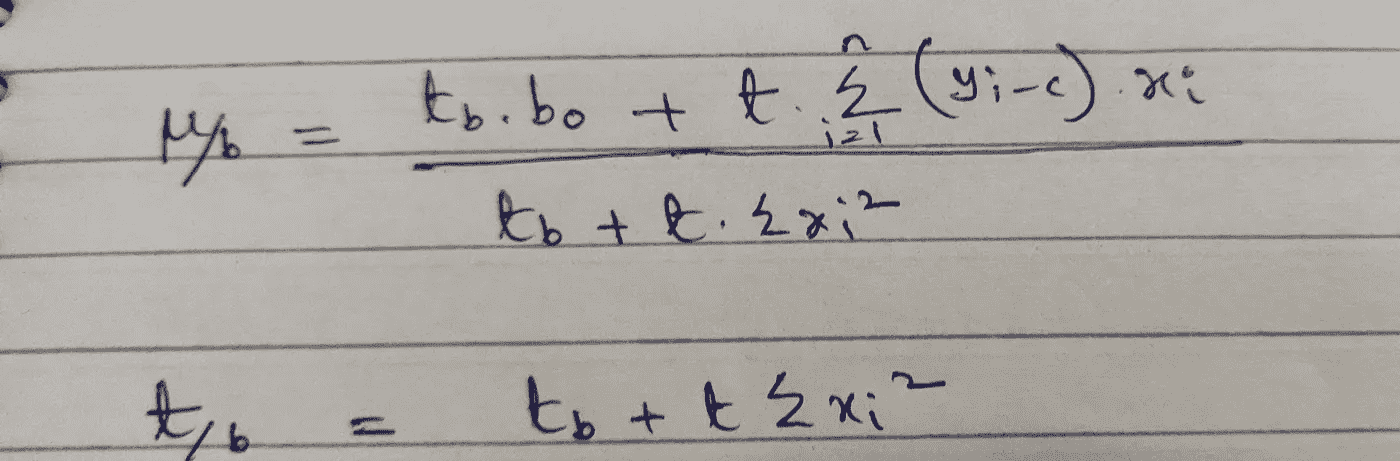 μ/b = (t_b . b_0 + t . Σ_{i=1}^{n} (y_i - c) . x_i) / (t_b + t . Σ x_i²)
t/b = t_b + t Σ x_i²